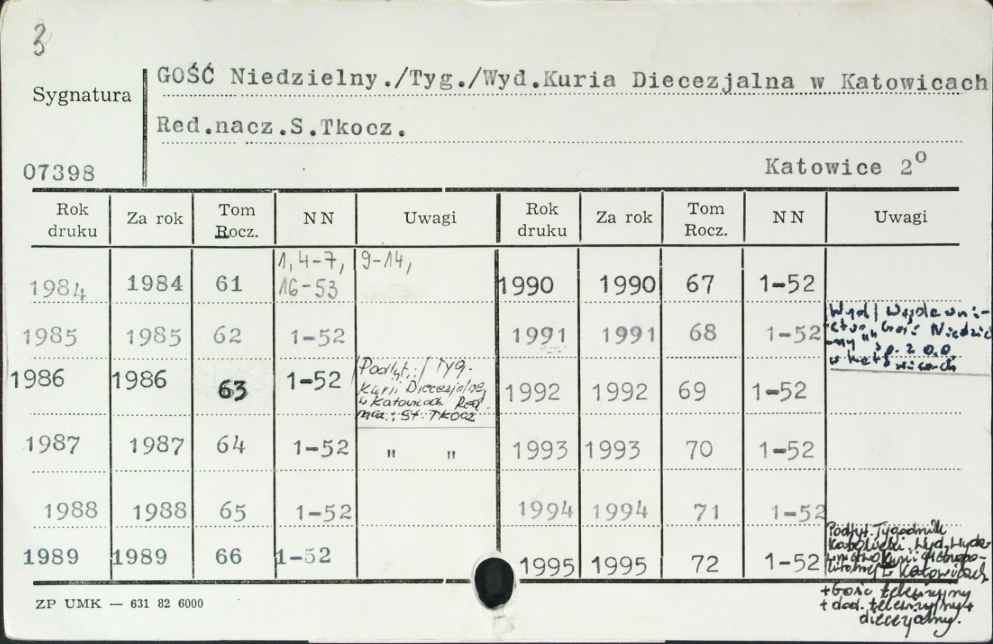 3
Sygnatura
GOŚĆ Niedzielny./Tyg./Wyd.Kuria Diecezjalna w Katowicach
Red.nacz.S.Tkocz.
07398
Katowice 2º
Rok druku Za rok Tom Rocz. NN Uwagi Rok druku Za rok Tom Rocz. NN Uwagi
1984 1984 61 1, 4-7, 9-14, 16-53 1990 1990 67 1-52
1985 1985 62 1-52 1991 1991 68 1-52
Wyd/ Wydawni-
ctwo "Gość Niedziel-
ny" Sp. z o.o
w Katowicach
1986 1986 63 1-52
Podtyt.:/ Tyg.
Kurii Diecezjalnej
w Katowicach Red.
nacz.: St. Tkocz
1992 1992 69 1-52
1987 1987 64 1-52 " " 1993 1993 70 1-52
1988 1988 65 1-52 1994 1994 71 1-52
1989 1989 66 1-52 1995 1995 72 1-52
Podtyt. Tygodnik
Katolicki. Wyd. Wydaw-
nictwo Kurii Metropo-
litalnej w Katowicach
+Gość telewizyjny
+ dod. telewizyjny+
diecezjalny.
ZP UMK — 631 82 6000